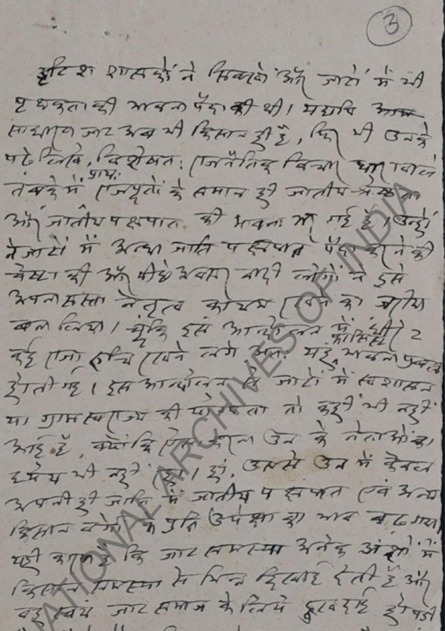 3
बृटिश शासकों ने सिक्खों और जाटों में भी
पृथकता की भावना पैदा की थी। यद्यपि
साधारण जाट अब भी किसान ही है, फिर भी उनके
पढे लिखे, विशेषत: राजनैतिक विचार धारा वाले
तबके में प्राय: राजपूतों के समान ही जातीय
और जातीय पक्षपात की भावना भर गई है। उन्हों
ने जाटों में अन्धा जाति पक्षपात पैदा करने की
चेष्टा की और पीछे अवसर वादी लोगों ने इसे
अपना सस्ता नेतृत्व कायम रखने का जरिया
बना लिया। चूंकि इस आन्दोलन में धीरे २
कई राजा रुचि रखने लगे अत: यह भावना प्रबल
होती गई। इस आन्दोलन से जाटों में स्वशासन
या ग्राम स्वराज्य की योग्यता तो कहीं भी नहीं
आई है, क्योंकि ऐसा करना उन के नेताओं का
ध्येय भी नहीं था। हां, उससे उन में केवल
अपनी ही जाति में जातीय पक्षपात एवं अन्य
किसान वर्गों के प्रति उपेक्षा का भाव बढ गया।
यही कारण है कि जाट समस्या अनेक अंशों में
किसान समस्या से भिन्न दिखाई देती है और
वह स्वयं जाट समाज के लिये दुखदाई हो पडी
NATIONAL ARCHIVES OF INDIA